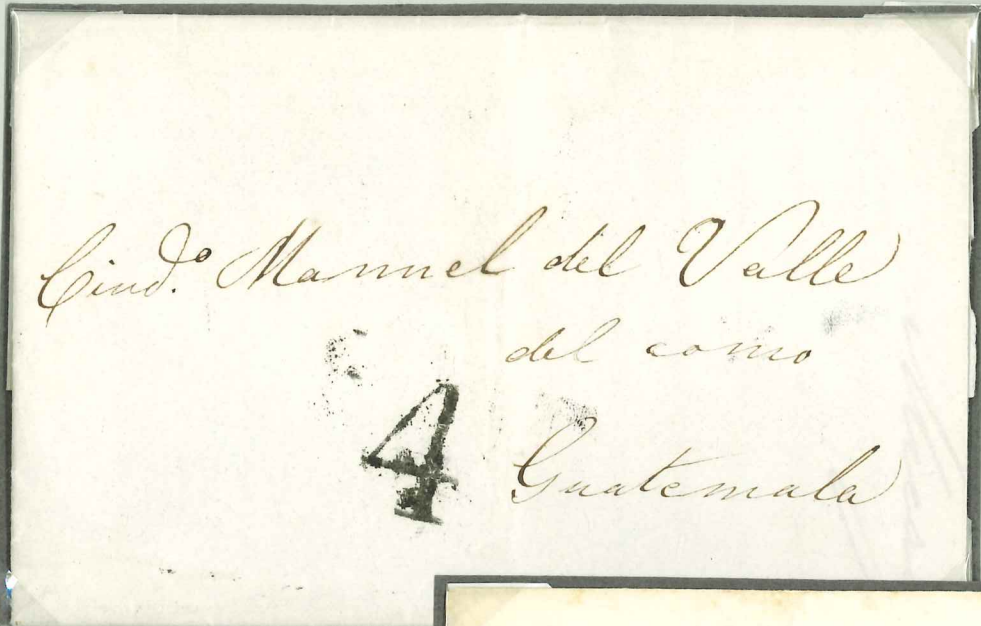 Ciud.º Manuel del Valle
del como
4
Guatemala